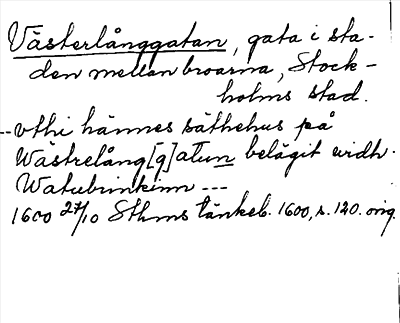 Västerlånggatan, gata i sta-
den mellan broarna, Stock-
holms stad.
--vthi hännes säthehus på
Wästrelång[g]atun belägit widh
Watubrinkinn ---
1600 27/10 Sthms tänkeb. 1600, s. 120. orig.